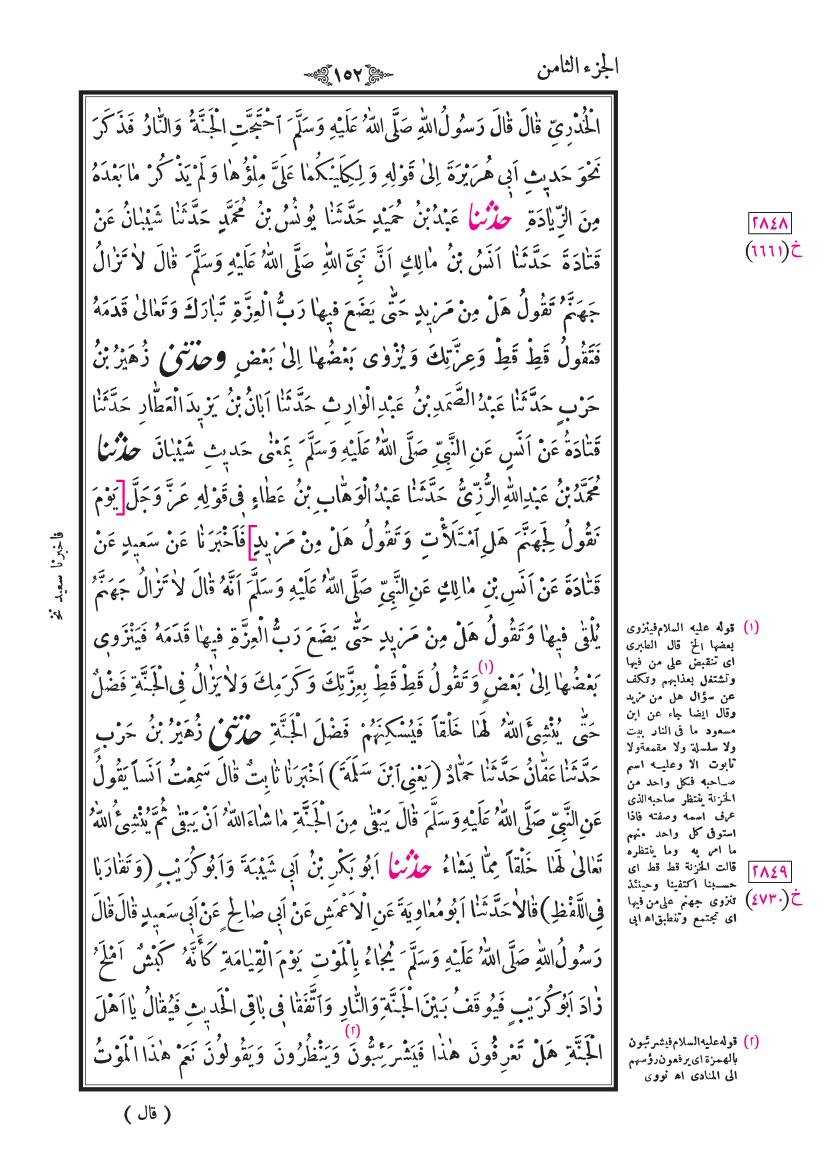 الجزء الثامن
١٥٢
الْخُدْرِيِّ قَالَ قَالَ رَسُولُ اللهِ صَلَّى اللهُ عَلَيْهِ وَسَلَّمَ اَحْتَجَّتِ الْجَنَّةُ وَالنَّارُ فَذَكَرَ
نَحْوَ حَديثِ اَبي هُرَيْرَةَ اِلىٰ قَوْلِهِ وَ لِكِلَيْكُمَا عَلَيَّ مِلْؤُهَا وَلَمْ يَذْكُرْ مَا بَعْدَهُ
مِنَ الزِّيَادَةِ حدثنا عَبْدُ بْنُ حُمَيْدٍ حَدَّثَنَا يُونُسُ بْنُ مُحَمَّدٍ حَدَّثَنَا شَيْبَانُ عَنْ
قَتَادَةَ حَدَّثَنَا اَنَسُ بْنُ مَالِكٍ اَنَّ نَبِيَّ اللهِ صَلَّى اللهُ عَلَيْهِ وَسَلَّمَ قَالَ لاَ تَزَالُ
جَهَنَّمُ تَقُولُ هَلْ مِنْ مَزيدٍ حَتَّى يَضَعَ فيهَا رَبُّ الْعِزَّةِ تَبَارَكَ وَتَعَالىٰ قَدَمَهُ
فَتَقُولُ قَطْ قَطْ وَعِزَّتِكَ وَيُزْوٰى بَعْضُهَا اِلىٰ بَعْضٍ وحدثني زُهَيْرُ بْنُ
حَرْبٍ حَدَّثَنَا عَبْدُ الصَّمَدِ بْنُ عَبْدِ الْوَارِثِ حَدَّثَنَا اَبَانُ بْنُ يَزيدَ الْعَطَّارِ حَدَّثَنَا
قَتَادَةُ عَنْ اَنَسٍ عَنِ النَّبِيِّ صَلَّى اللهُ عَلَيْهِ وَسَلَّمَ بِمَعْنٰى حَديثِ شَيْبَانَ حدثنا
مُحَمَّدُ بْنُ عَبْدِ اللهِ الرُّزِّيُّ حَدَّثَنَا عَبْدُ الْوَهَّابِ بْنُ عَطَاءٍ في قَوْلِهِ عَزَّ وَجَلَّ [يَوْمَ
نَقُولُ لِجَهَنَّمَ هَلِ امْتَلَأْتِ وَتَقُولُ هَلْ مِنْ مَزيدٍ] فَاَخْبَرَنَا عَنْ سَعيدٍ عَنْ
قَتَادَةَ عَنْ اَنَسِ بْنِ مَالِكٍ عَنِ النَّبِيِّ صَلَّى اللهُ عَلَيْهِ وَسَلَّمَ اَنَّهُ قَالَ لاَ تَزَالُ جَهَنَّمُ
يُلْقٰى فيهَا وَتَقُولُ هَلْ مِنْ مَزيدٍ حَتَّى يَضَعَ رَبُّ الْعِزَّةِ فيهَا قَدَمَهُ فَيَنْزَوي
بَعْضُهَا اِلىٰ بَعْضٍ (١) وَتَقُولُ قَطْ قَطْ بِعِزَّتِكَ وَكَرَمِكَ وَلاَ يَزَالُ فِي الْجَنَّةِ فَضْلٌ
حَتّٰى يُنْشِئَ اللهُ لَهَا خَلْقاً فَيُسْكِنَهُمْ فَضْلَ الْجَنَّةِ حدثني زُهَيْرُ بْنُ حَرْبٍ
حَدَّثَنَا عَفَّانُ حَدَّثَنَا حَمَّادٌ (يَعْنِي ابْنَ سَلَمَةَ) اَخْبَرَنَا ثَابِتٌ قَالَ سَمِعْتُ اَنَساً يَقُولُ
عَنِ النَّبِيِّ صَلَّى اللهُ عَلَيْهِ وَسَلَّمَ قَالَ يَبْقٰى مِنَ الْجَنَّةِ مَا شَاءَ اللهُ اَنْ يَبْقٰى ثُمَّ يُنْشِئُ اللهُ
تَعَالىٰ لَهَا خَلْقاً مِمَّا يَشَاءُ حدثنا اَبُو بَكْرِ بْنُ اَبي شَيْبَةَ وَاَبُو كُرَيْبٍ (وَتَقَارَبَا
فِي اللَّفْظِ) قَالاَ حَدَّثَنَا اَبُو مُعَاوِيَةَ عَنِ الْاَعْمَشِ عَنْ اَبي صَالِحٍ عَنْ اَبي سَعيدٍ قَالَ قَالَ
رَسُولُ اللهِ صَلَّى اللهُ عَلَيْهِ وَسَلَّمَ يُجَاءُ بِالْمَوْتِ يَوْمَ الْقِيَامَةِ كَاَنَّهُ كَبْشٌ اَمْلَحُ
زَادَ اَبُو كُرَيْبٍ فَيُوقَفُ بَيْنَ الْجَنَّةِ وَالنَّارِ وَاتَّفَقَا في بَاقِي الْحَديثِ فَيُقَالُ يَا اَهْلَ
الْجَنَّةِ هَلْ تَعْرِفُونَ هٰذَا فَيَشْرَئِبُّونَ (٢) وَيَنْظُرُونَ وَيَقُولُونَ نَعَمْ هٰذَا الْمَوْتُ
( قال )
٢٨٤٨
خ (٦٦٦١)
(١) قوله عليه السلام فينزوى
بعضها الخ قال الطبرى
اى تنقبض على من فيها
وتشتغل بعذابهم وتكف
عن سؤال هل من مزيد
وقال ايضا جاء عن ابن
مسعود ما فى النار بيت
ولا سلسلة ولا مقمعة ولا
تابوت الا وعليه اسم
صاحبه فكل واحد من
الخزنة ينتظر صاحبه الذى
عرف اسمه وصفته فاذا
استوفى كل واحد منهم
ما امر به وما ينتظره
قالت الخزنة قط قط اى
حسبنا اكتفينا وحينئذ
تنزوى جهنم على من فيها
اى تجتمع وتنطبق اه ابى
٢٨٤٩
خ (٤٧٣٠)
(٢) قوله عليه السلام فيشرئبون
بالهمزة اى يرفعون رؤسهم
الى المنادى اه نووى
فاخبرنا سعيد نخ